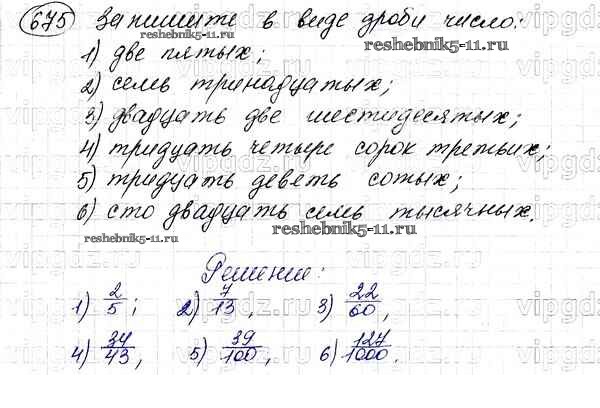 675 Запишите в виде дроби число:
1) две пятых;
2) семь тринадцатых;
3) двадцать две шестидесятых;
4) тридцать четыре сорок третьих;
5) тридцать девять сотых;
6) сто двадцать семь тысячных.
reshebnik5-11.ru
Решение:
1) 2/5; 2) 7/13, 3) 22/60,
4) 34/43, 5) 39/100, 6) 127/1000.